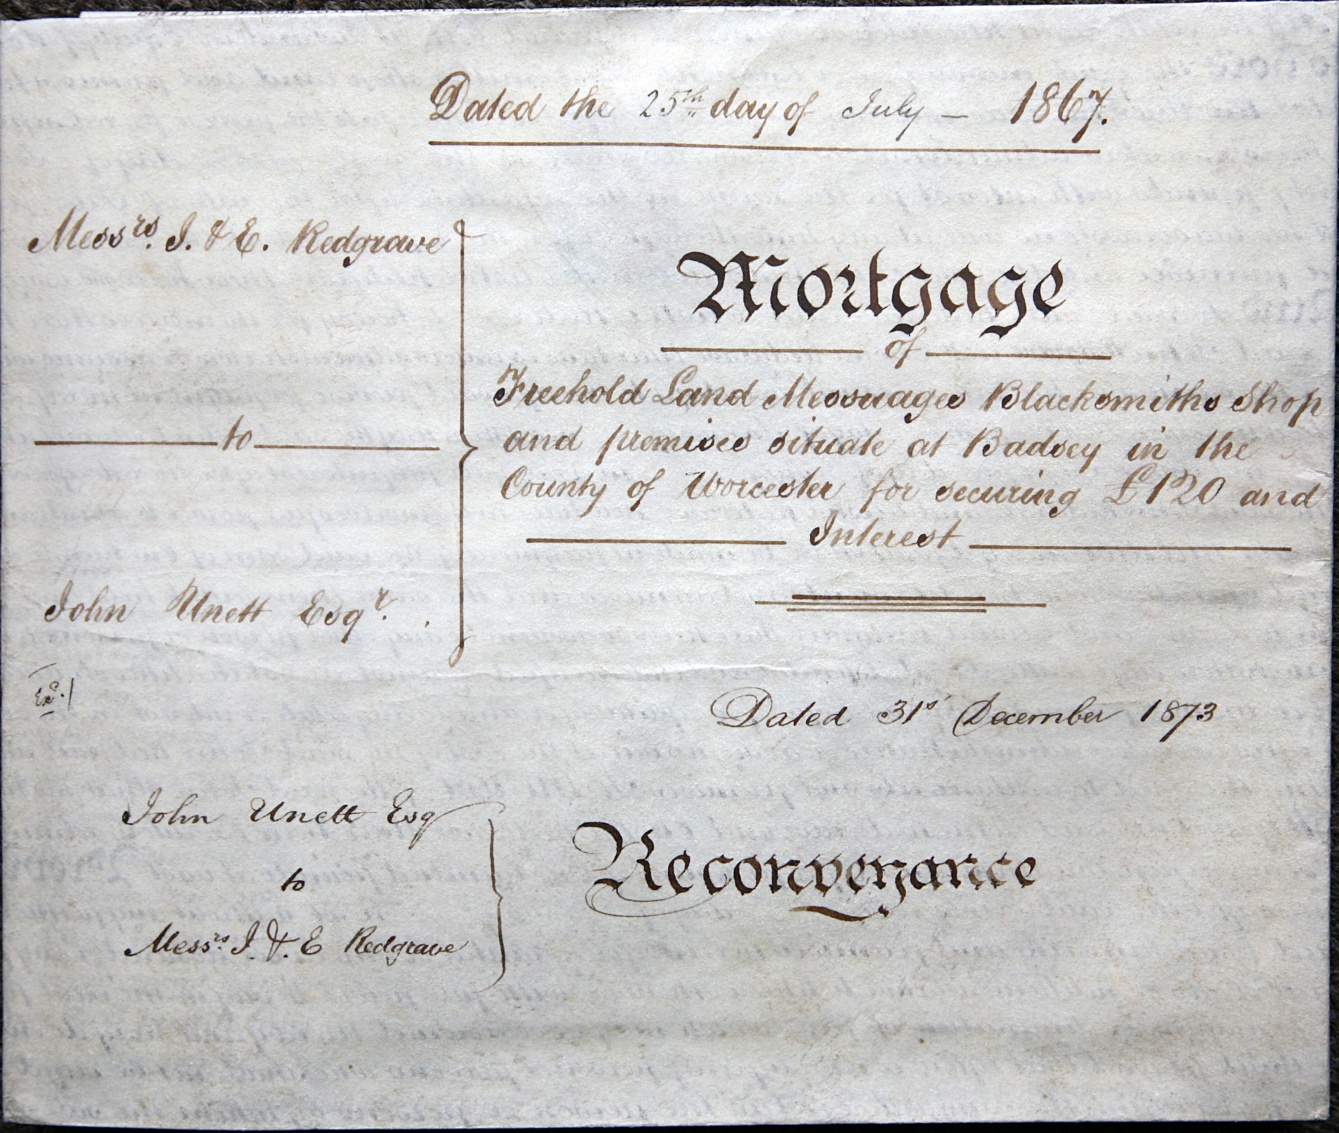 Dated the 25th day of July — 1867.
Messrs. I. & E. Redgrave
to
John Unett Esqr.
Mortgage
of
Freehold Land Messuages Blacksmiths Shop
and premises situate at Badsey in the
County of Worcester for securing £120 and
Interest
Exd.
Dated 31st December 1873
John Unett Esq
to
Messrs. I. & E Redgrave
Reconveyance